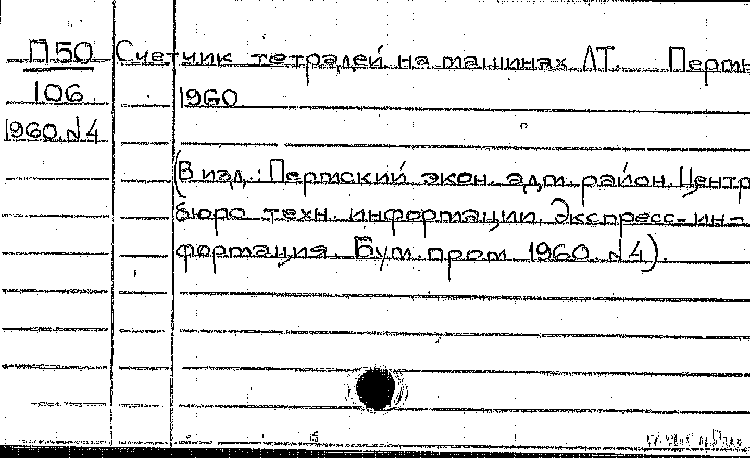 П50 Счетчик тетрадей на машинах ЛТ. Пермь
106 1960
1960 №4
(В изд.: Пермский экон. адм. район. Центр
бюро техн. информации. Экспресс-ин-
формация. Бум. пром 1960. №4).